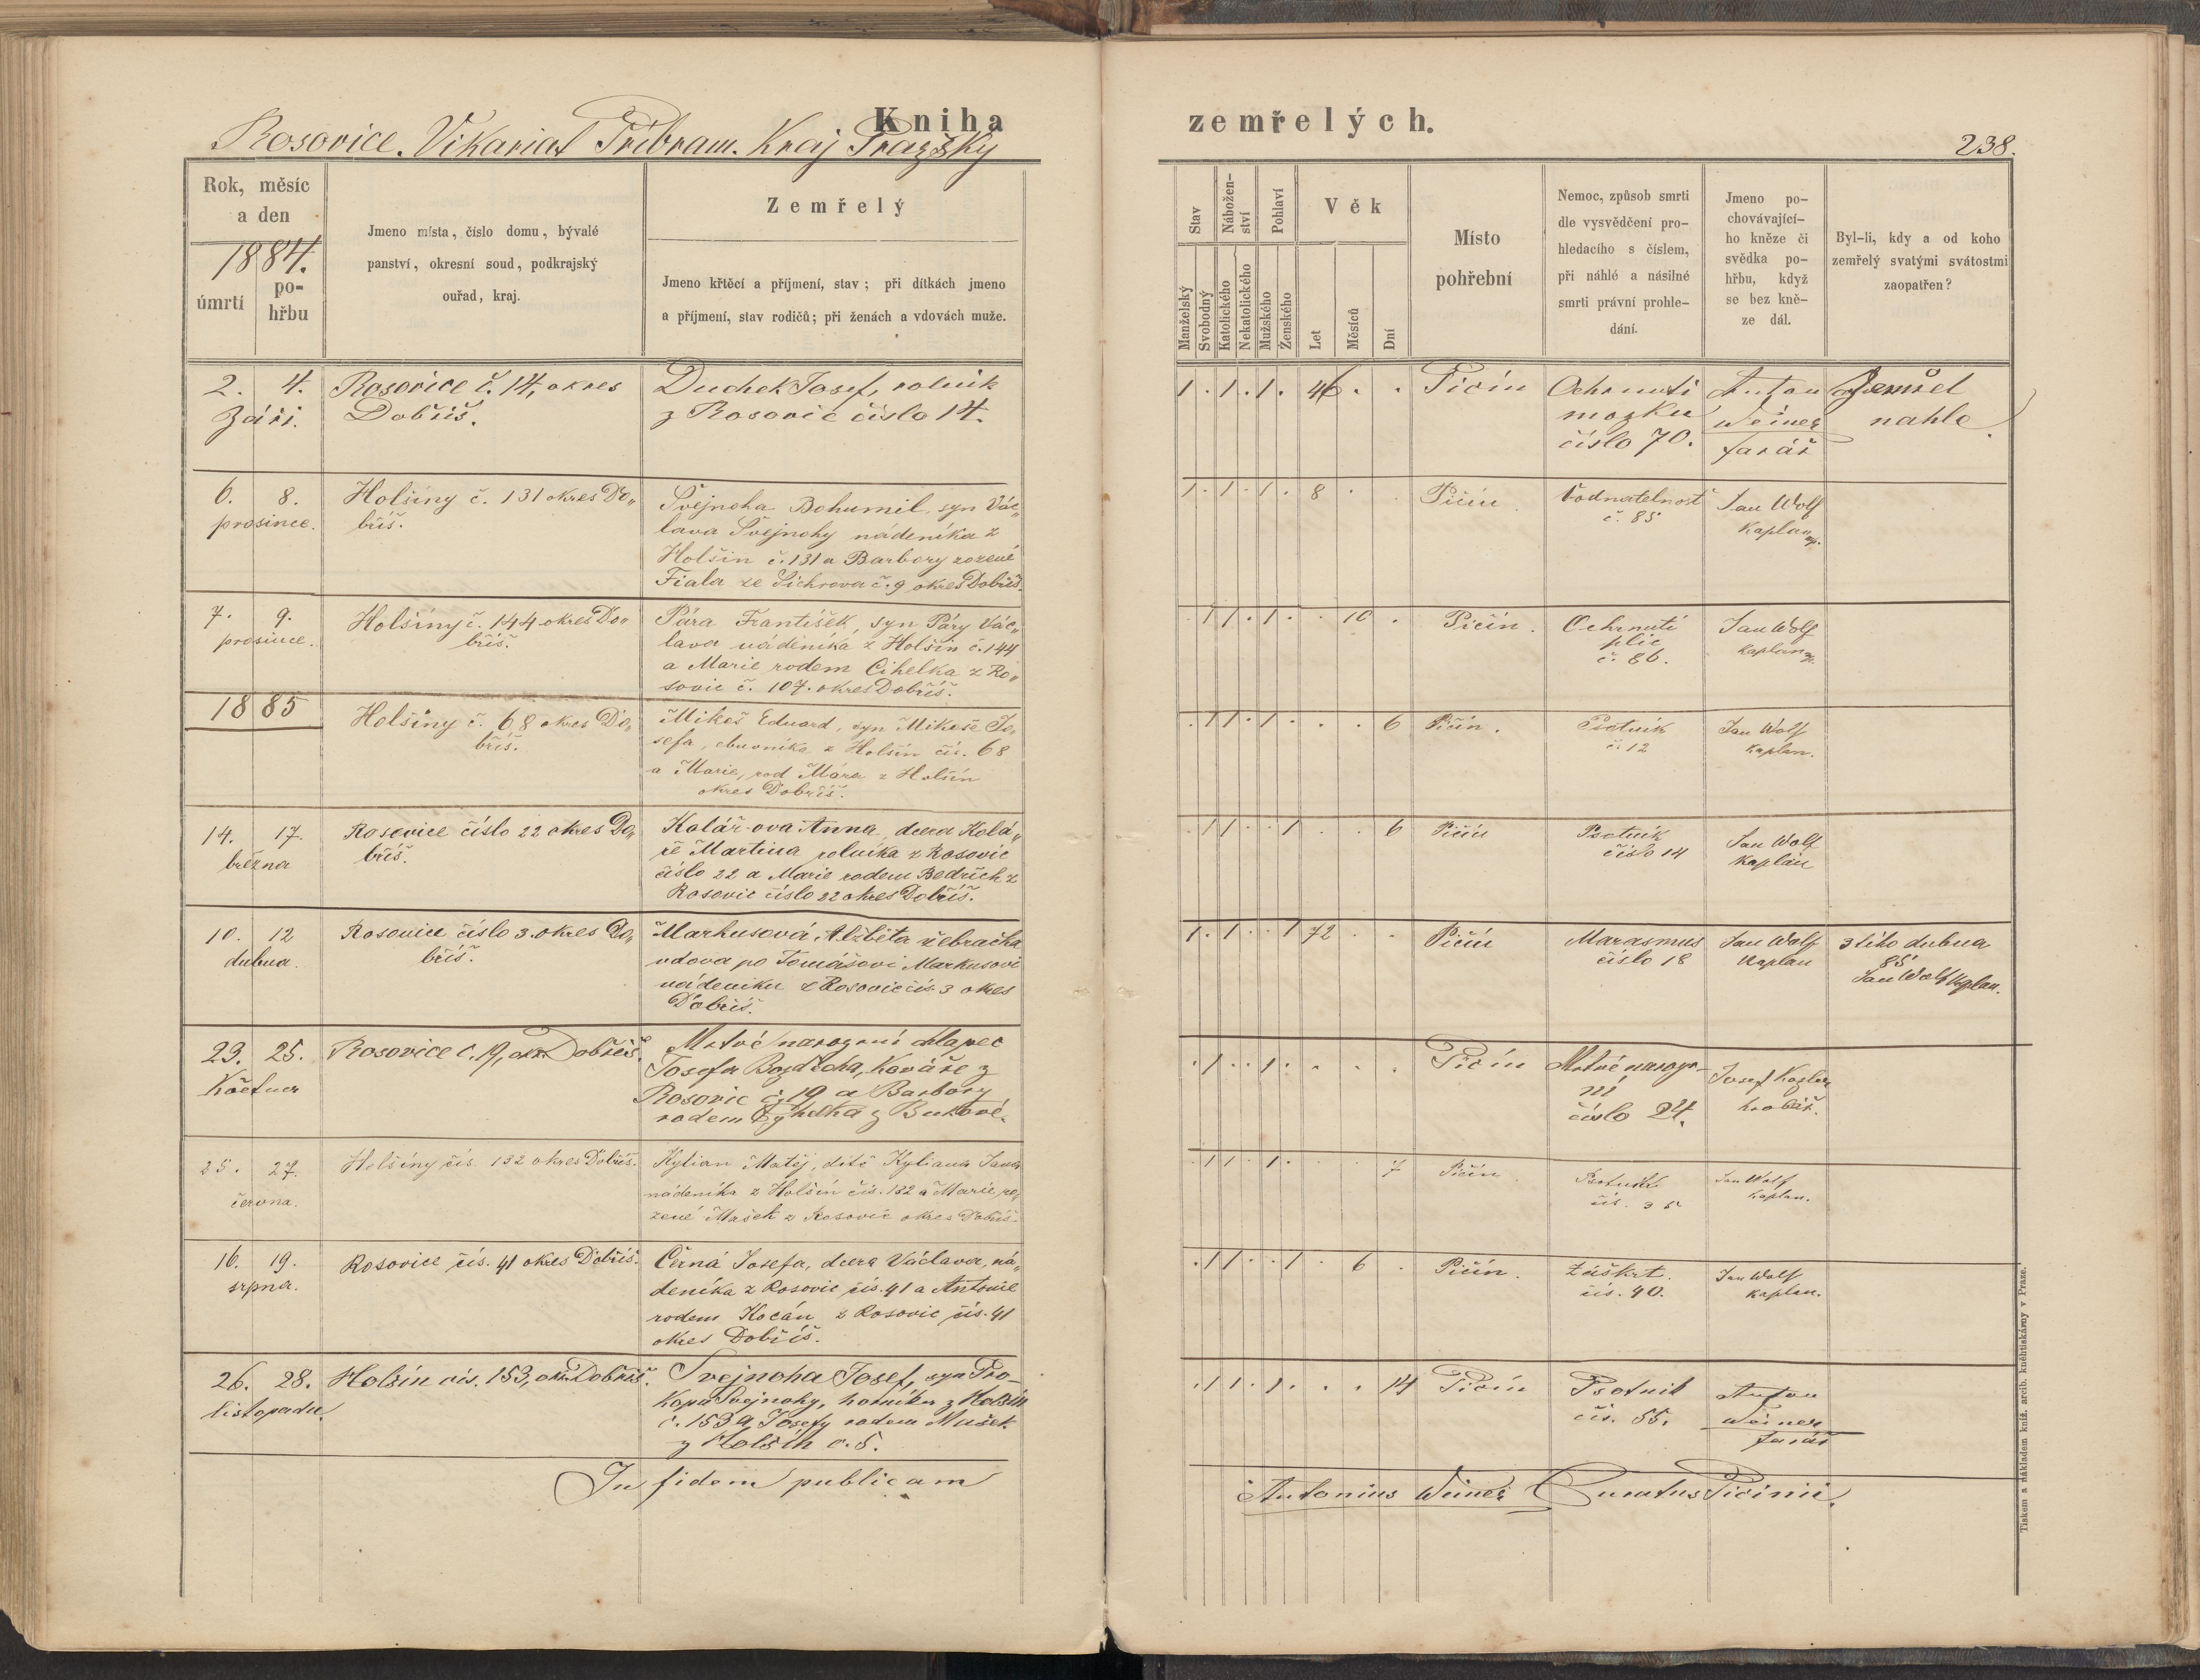 Kniha zemřelých.
Rosovice. Vikariat Příbram. Kraj Pražský
238.
Rok, měsíc
a den
1884.
úmrtí
po-
hřbu
Jmeno místa, číslo domu, bývalé
panství, okresní soud, podkrajský
ouřad, kraj.
Zemřelý
Jmeno křtěcí a příjmení, stav; při dítkách jmeno
a příjmení, stav rodičů; při ženách a vdovách muže.
Stav
Manželský
Svobodný
Nábožen-
ství
Katolického
Nekatolického
Pohlaví
Mužského
Ženského
Věk
Let
Měsíců
Dní
Místo
pohřební
Nemoc, způsob smrti
dle vysvědčení pro-
hledacího s číslem,
při náhlé a násilné
smrti právní prohle-
dání.
Jmeno po-
chovávající-
ho kněze či
svědka po-
hřbu, když
se bez kně-
ze dál.
Byl-li, kdy a od koho
zemřelý svatými svátostmi
zaopatřen?
2. 4.
Září.
Rosovice č. 14, okres
Dobříš.
Duchek Josef, rolník
z Rosovic číslo 14.
1 . 1 . 1 . 46 . .
Pičín
Ochrnutí
mozku
číslo 70.
Anton
Weiner
farář
Zemřel
nahle.
6. 8.
prosince.
Holšiny č. 131 okres Do„
bříš.
Švejnoha Bohumil, syn Vác„
lava Švejnohy nádeníka z
Holšin č. 131 a Barbory rozené
Fiala ze Sichrova č. 9 okres Dobříš.
1 . 1 . 1 . 8 . .
Pičín
Vodnatelnost
č. 85
Jan Wolf
Kaplan
7. 9.
prosince.
Holšiny č. 144 okres Do„
bříš.
Pára František, syn Páry Vác„
lava nádeníka z Holšin č. 144
a Marie rodem Cihelka z Ro„
sovic č. 107. okres Dobříš.
. 1 1 . 1 . . 10 .
Pičín.
Ochrnutí
plic
č. 86.
Jan Wolf
kaplan
1885
Holšiny č. 68 okres Do„
bříš.
Mikeš Eduard, syn Mikeše Jo„
sefa, obuvníka z Holšin čís. 68
a Marie, rod Mára z Holšin
okres Dobříš.
. 1 1 . 1 . . . 6
Pičín.
Psotník
č. 12
Jan Wolf
kaplan.
14. 17.
března
Rosovice číslo 22 okres Do„
bříš.
Kolář-ova Anna, dcera Kolá„
ře Martina rolníka z Rosovic
číslo 22 a Marie rodem Bedřich z
Rosovic číslo 22 okres Dobříš.
. 1 1 . . 1 . . 6
Pičín
Psotník
číslo 14
Jan Wolf
Kaplán
10. 12
dubna.
Rosovice číslo 3. okres Do„
bříš.
Markusová Alžběta žebračka
vdova po Tomášovi Markusovi
nádeníku z Rosovic čís. 3 okres
Dobříš.
1 . 1 . . 1 72 . .
Pičín
Marasmus
číslo 18
Jan Wolf
Kaplan
3tího dubna
85
Jan Wolf Kaplan.
23. 25.
Května
Rosovice č. 19, okr. Dobříš.
Mrtvě narozený chlapec
Josefa Bozděcha, Kováře z
Rosovic č. 19 a Barbory
rodem Cyhelka z Bukové.
. 1 . . 1 . . . .
Pičín
Mrtvě naroze-
ní
číslo 24.
Josef Kozler
hrobař.
25. 27.
června.
Holšiny čís. 132 okres Dobříš.
Kylian Matěj, dítě Kyliana Jana
nádeníka z Holšin čís. 132 a Marie ro„
zené Mašek z Rosovic okres Dobříš.
. 1 1 . 1 . . . 7
Pičín.
Psotník
čís. 35
Jan Wolf
kaplan.
16. 19.
srpna.
Rosovice čís. 41 okres Dobříš.
Černá Josefa, dcera Václava, ná„
deníka z Rosovic čís. 41 a Antonie
rodem Kocán z Rosovic čís. 41
okres Dobříš.
. 1 1 . . 1 . 6 .
Pičín.
Záškrt.
čís. 40.
Jan Wolf
kaplan.
26. 28.
listopadu.
Holšin čís. 153, okr. Dobříš.
Švejnoha Josef, syn Pro-
kopa Švejnohy, horníka z Holšin
č. 153 a Josefy rodem Mašek
z Holšin č. 5.
. 1 1 . 1 . . . 14
Pičín
Psotník
čís. 55.
Anton
Weiner
farář
In fidem publicam
Antonius Weiner Curatus Pičinii.
Tiskem a nákladem kníž. arcib. knihtiskárny v Praze.